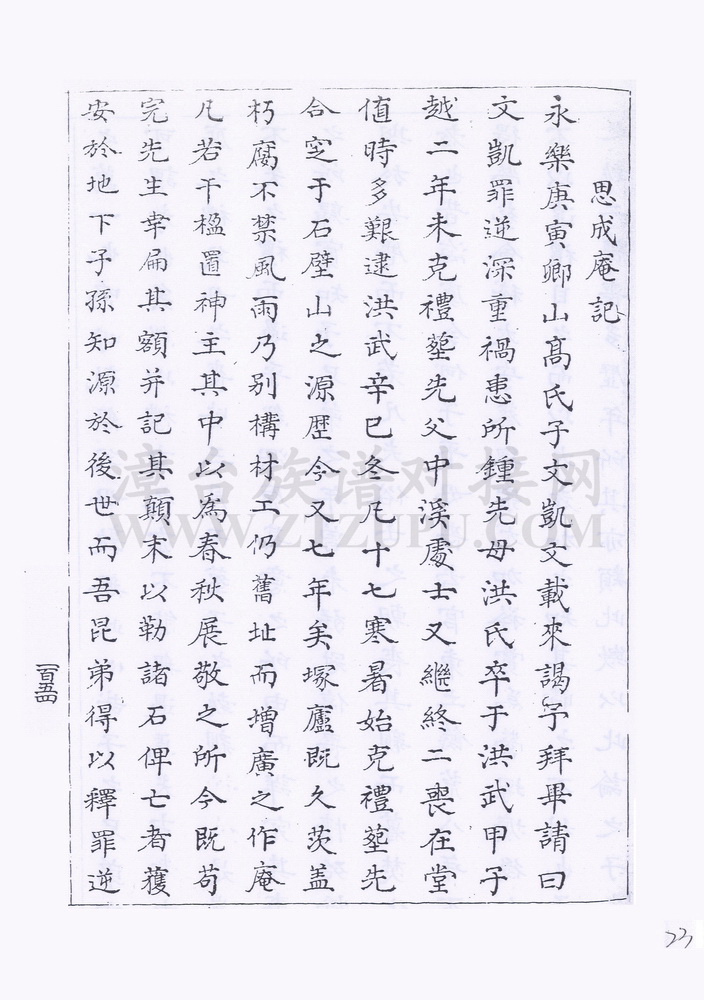 思成庵記
永樂庚寅卿山高氏子文凱文載來謁予拜畢請曰
文凱罪逆深重禍患所鍾先母洪氏卒于洪武甲子
越二年未克禮塟先父中溪處士又繼終二喪在堂
值時多艱逮洪武辛巳冬凡十七寒暑始克禮塟先
合窆于石壁山之源歷今又七年矣塚廬既久茨盖
朽腐不禁風雨乃別構材工仍舊址而增廣之作庵
凡若干楹置神主其中以為春秋展敬之所今既苟
完先生幸扁其額并記其顛末以勒諸石俾亡者獲
安於地下子孫知源於後世而吾昆弟得以釋罪逆
一百五四
23
漳台族谱对接网
WWW.ZTZUPU.COM